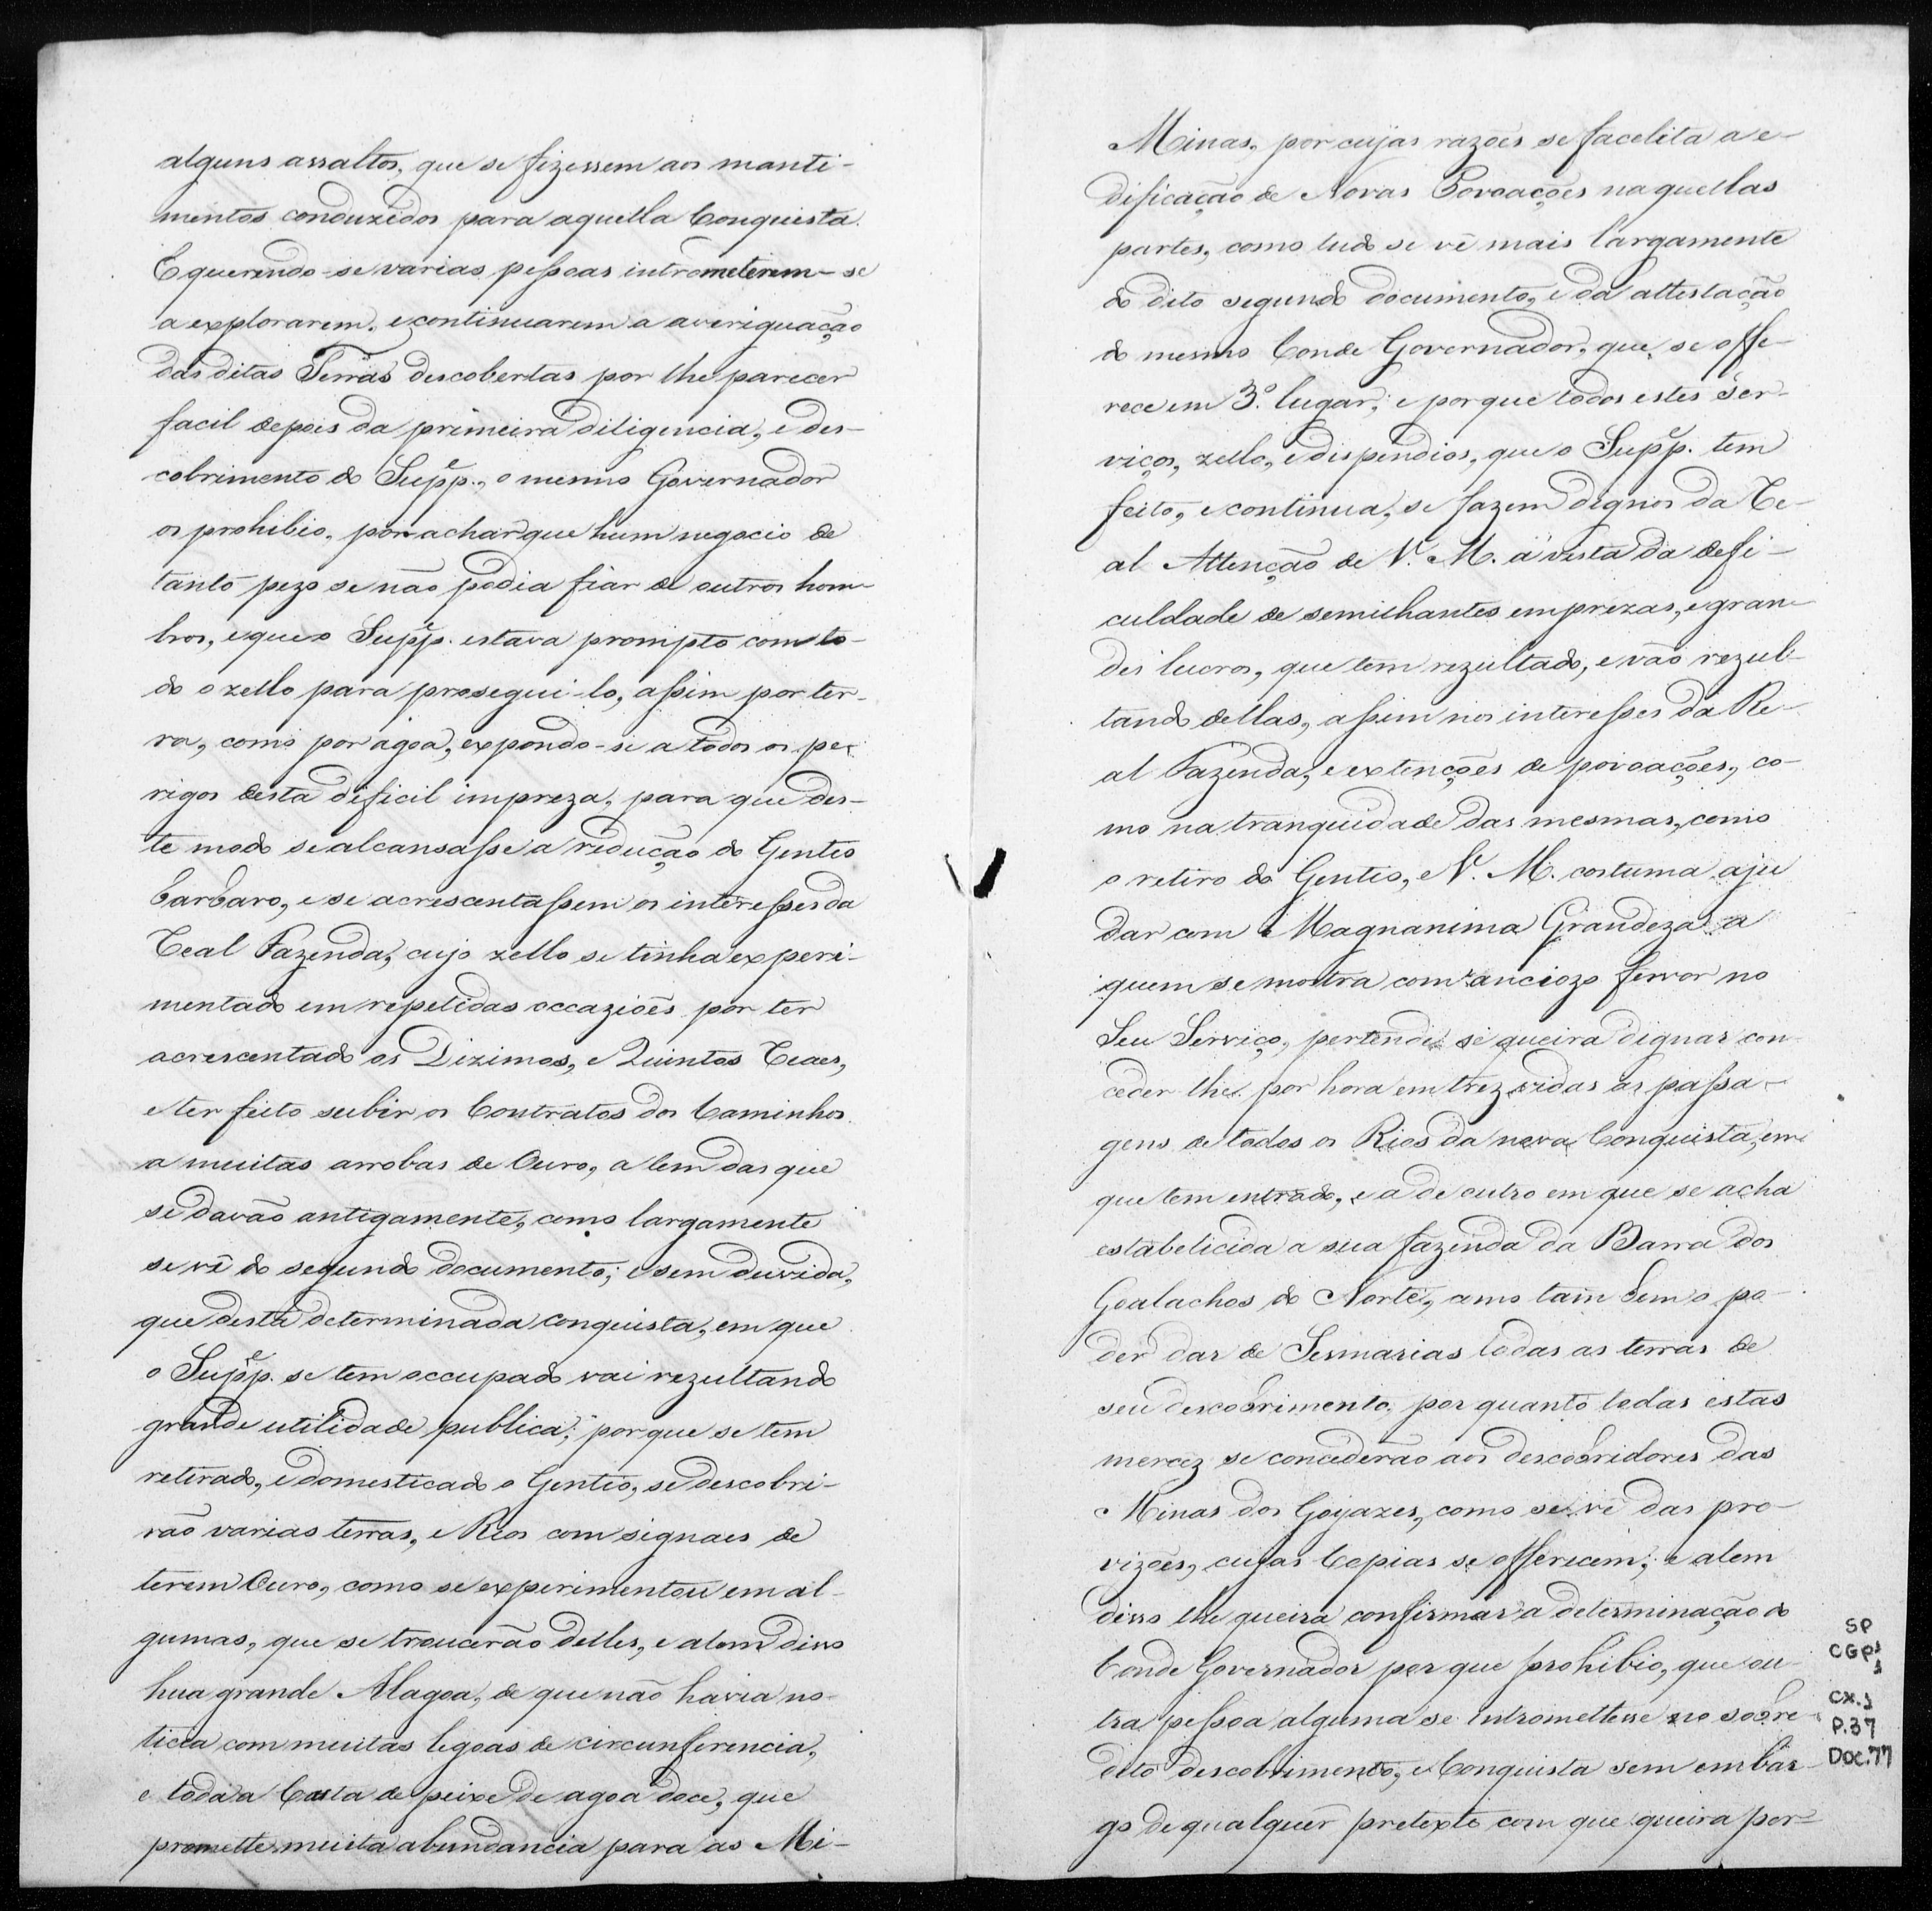 alguns assaltos, que se fizessem aos manti-
mentos conduzidos para aquella Conquista.
E querendo-se varias pessoas intrometerem-se
a explorarem, e continuarem a averiguação
das ditas Terras descobertas por lhe parecer
facil depois da primeira diligencia, e des-
cobrimento do Suppe., o mesmo Governador
os prohibio, por achar que hum negocio de
tanto pezo se não podia fiar de outros hom-
bros, e que o Suppe. estava prompto com to-
do o zello para prosegui-lo, assim por ter-
ra, como por agoa, expondo-se a todos os pe-
rigos desta dificil impreza, para que des-
te modo se alcansasse a redução do Gentio
barbaro, e se acrescentassem os interesses da
Real Fazenda, cujo zello se tinha experi-
mentado em repetidas occaziões por ter
acrescentado os Dizimos, e Quintos Reaes,
e ter feito subir os Contratos dos Caminhos
a muitas arrobas de Ouro, alem das que
se davão antigamente, como largamente
se vê do segundo documento; e sem duvida,
que desta determinada conquista, em que
o Suppe. se tem occupado vai rezultando
grande utilidade publica; porque se tem
retirado, e domesticado o Gentio, se descobri-
rão varias terras, e Rios com signaes de
terem Ouro, como se experimentou em al-
gumas, que se troucerão delles, e alem disso
hua grande Alagoa, de que não havia no-
ticia com muitas legoas de circunferencia,
e toda a Casta de peixe de agoa doce, que
promette muita abundancia para as Mi-
Minas, por cujas razões se facelita a e-
dificação de Novas Povoações naquellas
partes, como tudo se vê mais largamente
do dito segundo documento, e da attestação
do mesmo Conde Governador, que se offe-
rece em 3º. lugar; e porque todos estes Ser-
viços, zello, e dispendios, que o Suppe. tem
feito, e continua, se fazem dignos da Re-
al Attenção de V. M. á vista da defi-
culdade de semilhantes emprezas, e gran-
des lucros, que tem rezultado, e vão rezul-
tando dellas, assim nos interesses da Re-
al Fazenda, e extenções de povoações, co-
mo na tranquidade das mesmas, como
o retiro do Gentio, e V. M. costuma aju
dar com a Magnanima Grandeza a
quem se mostra com anciozo fervor no
Seu Serviço, pertende se queira dignar con-
ceder-lhe por hora em trez vidas as passa-
gens de todos os Rios da nova Conquista, em
que tem entrado, e a de outro em que se acha
estabelicida a sua fazenda da Barra dos
Goalachos do Norte, como tam bem o po-
der dar de Sesmarias todas as terras de
seu descobrimento, por quanto todas estas
mercez se concederão aos descobridores das
Minas dos Goyazes, como se vê das pro-
vizões, cujas Copias se offerecem; e alem
disso lhe queira confirmar a determinação do
Conde Governador por que prohibio, que ou-
tra pessoa alguma se intromettesse no sobre-
dito descobrimento, e Conquista sem embar-
go de qualquer pretexto com que queira per-
SP
CGP1
1
CX.1
P.37
DOC.77